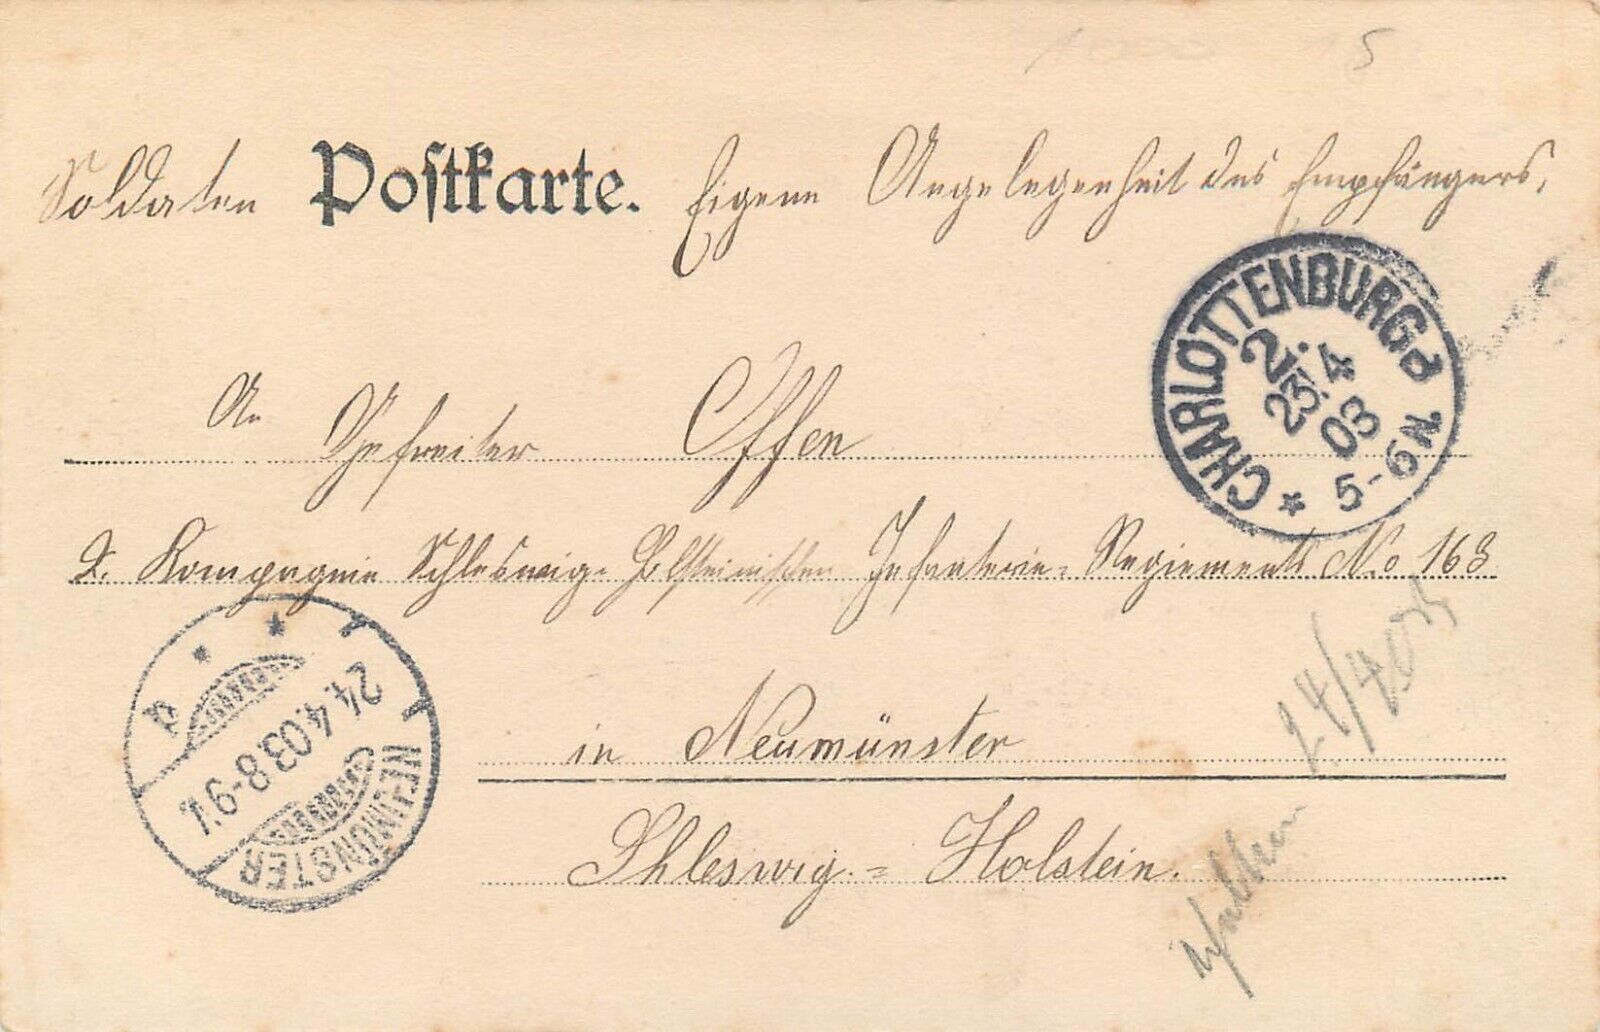 Soldaten Postkarte. Eigene Angelegenheit des Empfängers.
CHARLOTTENBURG 2. d
23.4
03
5-6N
An
Gefreiter Offen
2. Kompagnie Schleswig-Holsteinischen Infanterie-Regiments No 163
in Neumünster
Shleswig-Holstein.
NEUMÜNSTER
24.4.03.8-9V.
a
24/4 03